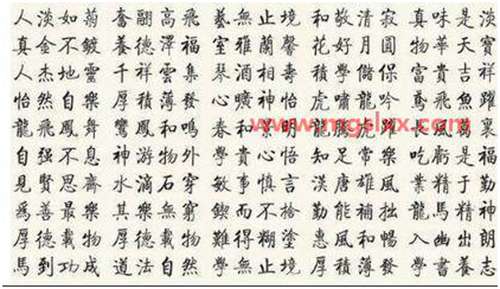 人淡如菊 奮翮高飛 藝無止境 和敬清寂 真味是淡
真金不鍍 養德澤福 室雅蘭馨 花好月圓 物華天寶
人杰地靈 千祥雲集 琴酒相壽 積學儲保 富貴吉祥
怡然自樂 厚積薄發 心曠神怡 虎嘯龍吟 鳶飛魚躍
龍飛鳳舞 鸞鳳和鳴 春和景明 龍 虎 長風
自强不息 神游物外 和貴心 知足常樂 吃虧是福
見賢思齊 水滴石穿 敏事慎言 漢唐雄風 業精于勤
爲善最樂 其樂無窮 鍥而不捨 勤能補拙 龍馬精神
厚德載物 厚德載物 難得糊塗 惠風和暢 入幽出朗
馬到功成 道法自然 學無止境 厚積薄發 學書養志